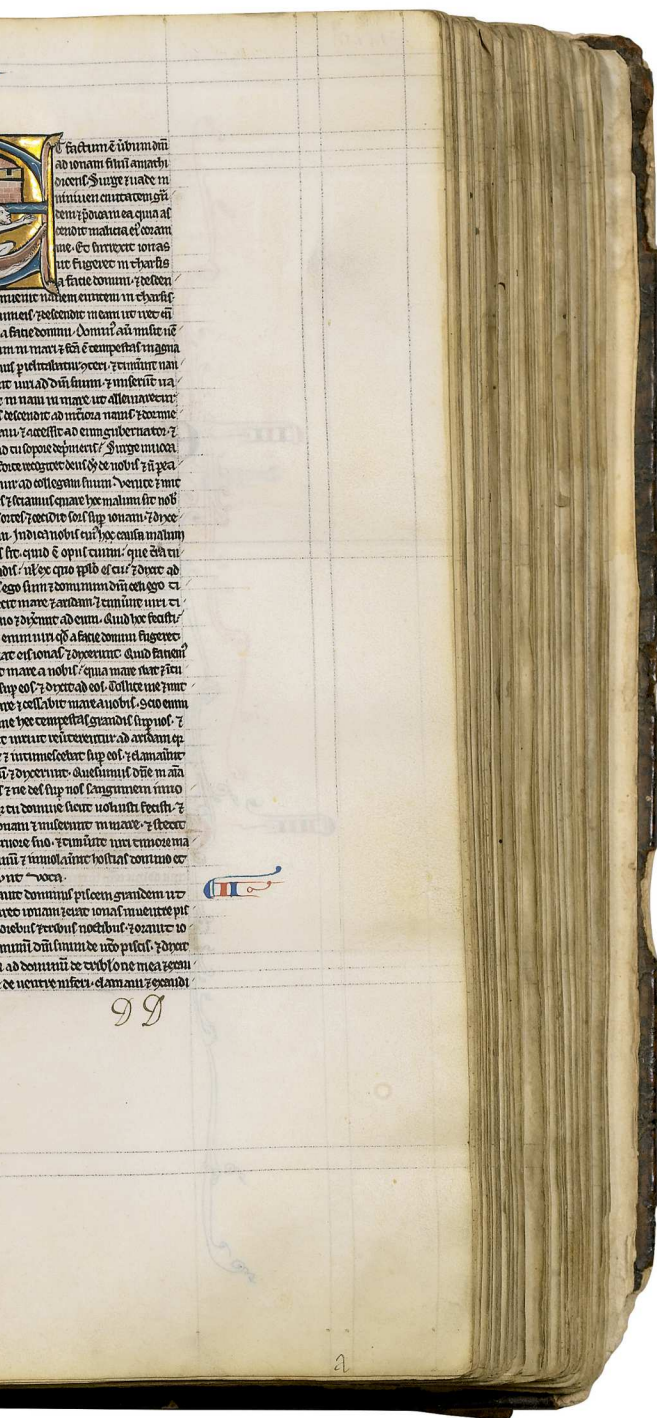 T factum ē ūbum dn̄i
ad ionam filiū amathi
dicens. Surge ⁊ uade in
niniuen ciuitatem gn̄
dem ⁊ p̄dica in ea quia as
cendit malicia ei coram
me. Et surrexit ionas
ut fugeret in tharsis
a facie domini. ⁊ descen
inuenit nauem euntem in tharsis
⁊ descendit in eam ut iret cū
a facie domini. Dominꝰ aū misit uē
um in mari ⁊ fc̄a ē tempestas magna
⁊ timūūt nau
ūt uiri ad dm̄ suum. ⁊ miserūt ua
in naui in mare ut alleuiaretur
descendit ad int̄iora nauis ⁊ dormie
aui. ⁊ accessit ad eum gubernator. ⁊
d tu sopore dep̄meris? Surge inuoca
forte recogitet deus de nobis ⁊ n̄ pea
uir ad collegam suum. Venite ⁊ mit
s ⁊ sciamus quare hoc malum sit nob̄
ortes. ⁊ cecidit sors sup̄ ionam. ⁊ dixe
Indica nobis cuiꝰ hoc causa malum
sit. quid ē opus tuum. que t̄ra tu
l ex quo pp̄lo es tu? ⁊ dixit ad
ego sum ⁊ dominum dm̄ celi ego ti
ecit mare ⁊ aridam. ⁊ timūūt uiri ti
no ⁊ dix̄unt ad eum. Quid hoc fecisti.
enim uiri qd̄ a facie domini fugeret
at eis ionas. ⁊ dixerunt. Quid faciemꝰ
t mare a nobis? quia mare ibat ⁊ itu
sup̄ eos. ⁊ dixit ad eos. Tollite me ⁊ mit
are ⁊ cessabit mare a uobis. Scio enim
me hec tempestas grandis sup̄ uos. ⁊
t uiri ut reūterentur ad aridam
t ⁊ intumescebat sup̄ eos. ⁊ clamaūūt
⁊ dixerunt. Quesumus dn̄e in aīa
s ⁊ ne des sup̄ nos sanguinem inno
tu domine sicut uoluisti fecisti. ⁊
onam ⁊ miserunt in mare. ⁊ stetit
uore suo. ⁊ timūūt uiri timore ma
inū ⁊ immolaūūt hostias domino et
unt uota.
auit dominus piscem grandem ut
ret ionam ⁊ erat ionas in uentre pis
diebus ⁊ tribus noctibus. ⁊ orauit io
minū dm̄ suum de ut̄o piscis. ⁊ dixit
i ad dominū de tribl̄one mea ⁊ exau
de uentre inferi. clamaui ⁊ exaudi
II
D D
a